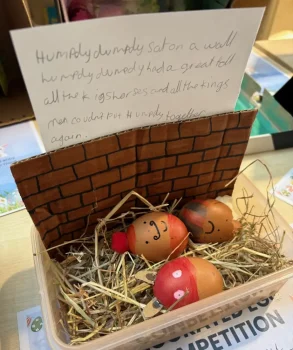 Humpdy dumpdy sat on a wall
humpdy dumpdy had a great fall
all the kings horses and all the kings
men couldnt put Humpdy together
again
COMPETITION